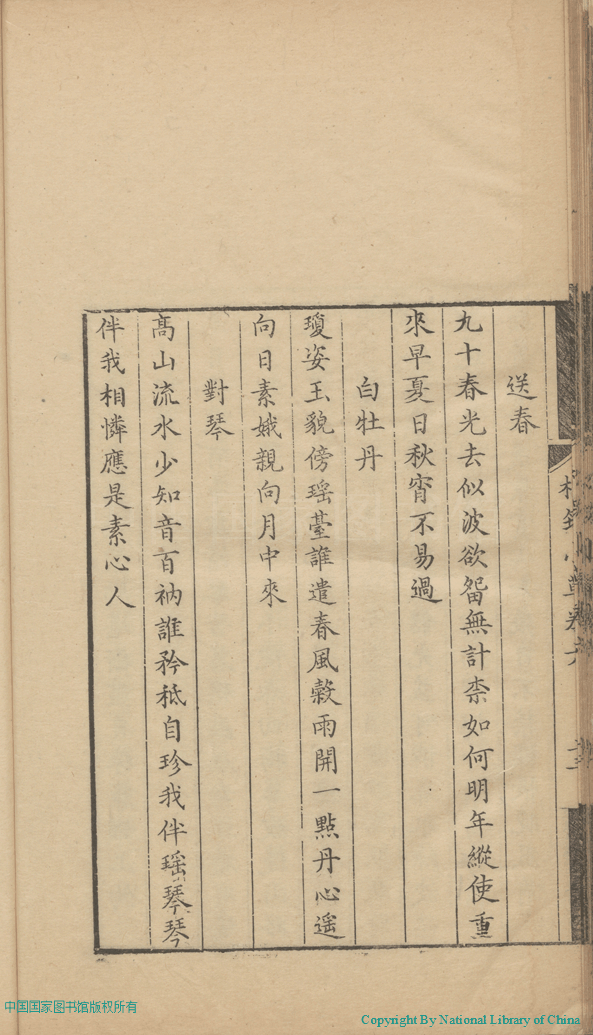 送春
九十春光去似波欲畱無計柰如何明年縱使重
來早夏日秋宵不易過
白牡丹
瓊姿玉貌傍瑶䑓誰遣春風榖雨開一點丹心遥
向日素娥親向月中來
對琴
高山流水少知音百衲誰矜秪自珍我伴瑶琴琴
伴我相憐應是素心人
中国国家图书馆版权所有
Copyright By National Library of China